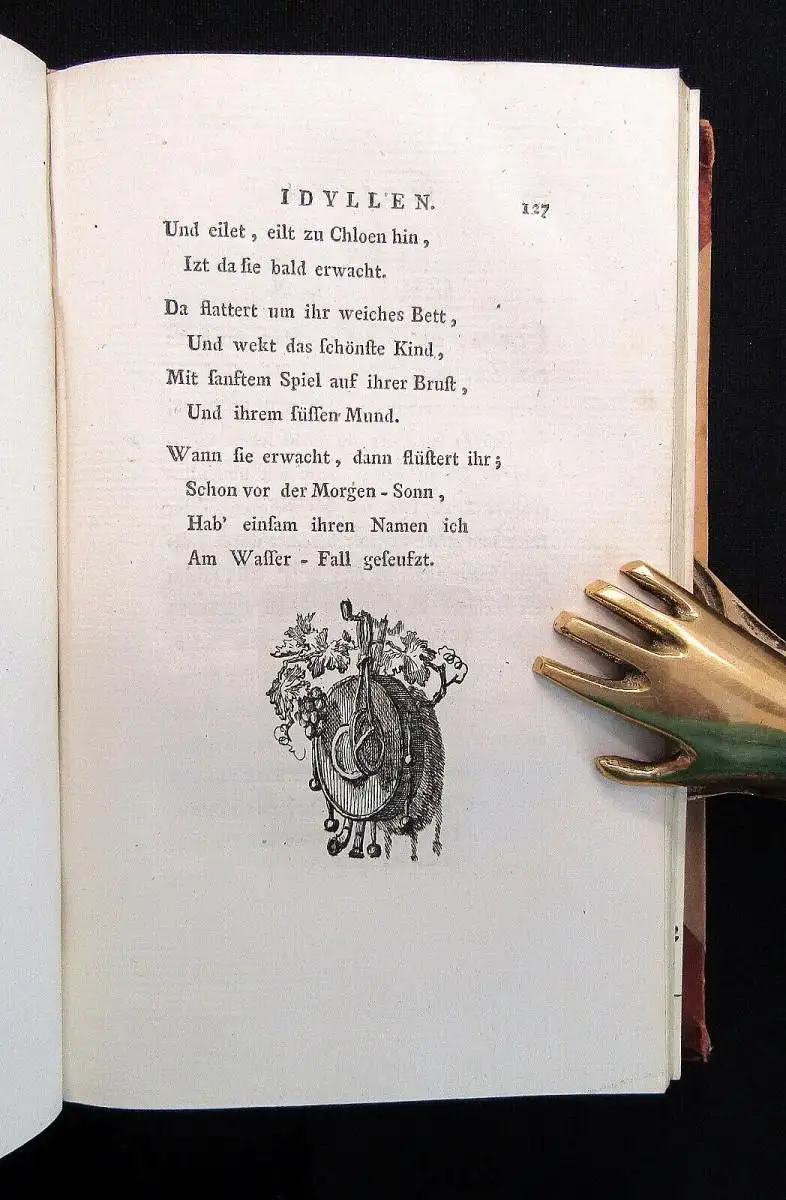 IDYLLEN. 127
Und eilet, eilt zu Chloen hin,
Izt da ſie bald erwacht.
Da flattert um ihr weiches Bett,
Und wekt das ſchönſte Kind,
Mit ſanftem Spiel auf ihrer Bruſt,
Und ihrem ſüſſen Mund.
Wann ſie erwacht, dann flüſtert ihr;
Schon vor der Morgen-Sonn,
Hab' einſam ihren Namen ich
Am Waſſer-Fall geſeufzt.